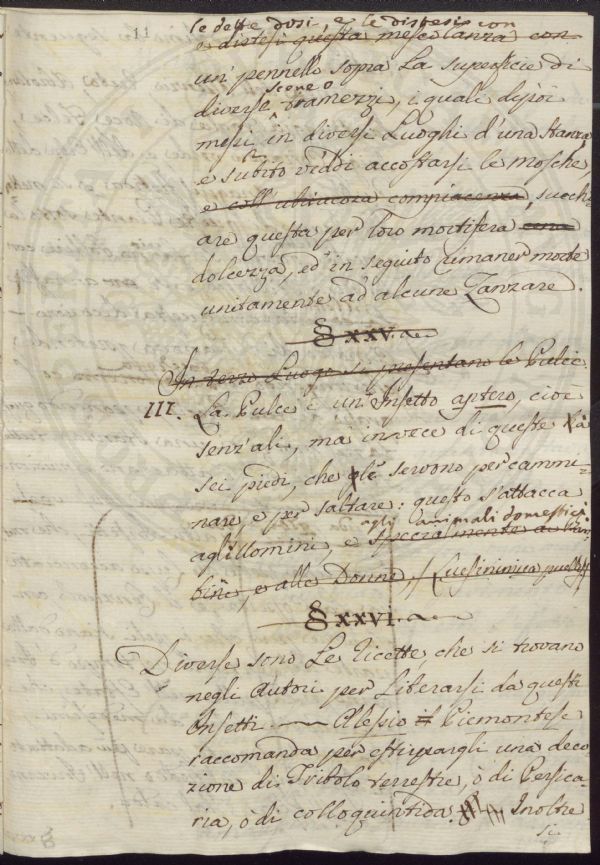 11
le dette dosi, e le distesi con
e distesi questa mescolanza con
un' pennello sopra La superficie di
diverse scene o tramezzi, i quali di poi
mesi in diversi Luoghi d'una stanza
e subito viddi accostarsi le mosche,
e coll' ultimora compiacenza, succhi-
are questa per loro mortifera
dolcezza, ed' in seguito rimaner morte
unitamente ad alcune Zanzare.
§ XXV.
In terzo Luogo si presentano le Pulci
III. La Pulce è un' Insetto aptero, cioè
senz'ali, ma invece di queste hà
sei piedi, che gle servono per cammi-
nare, e per saltare: questo s'attacca
agli animali domestici.
agl'Uomini, e specialmente ai bam
bini, e alle Donne,
§ XXVI.
Diverse sono Le Ricette, che si trovano
negli Autori per Liberarsi da questi
Insetti — Alessio il Piemontese
raccomanda per estirpargli una deco
zione di Tribolo terrestre, ò di Persica-
ria, ò di colloquintida. Inoltre
si